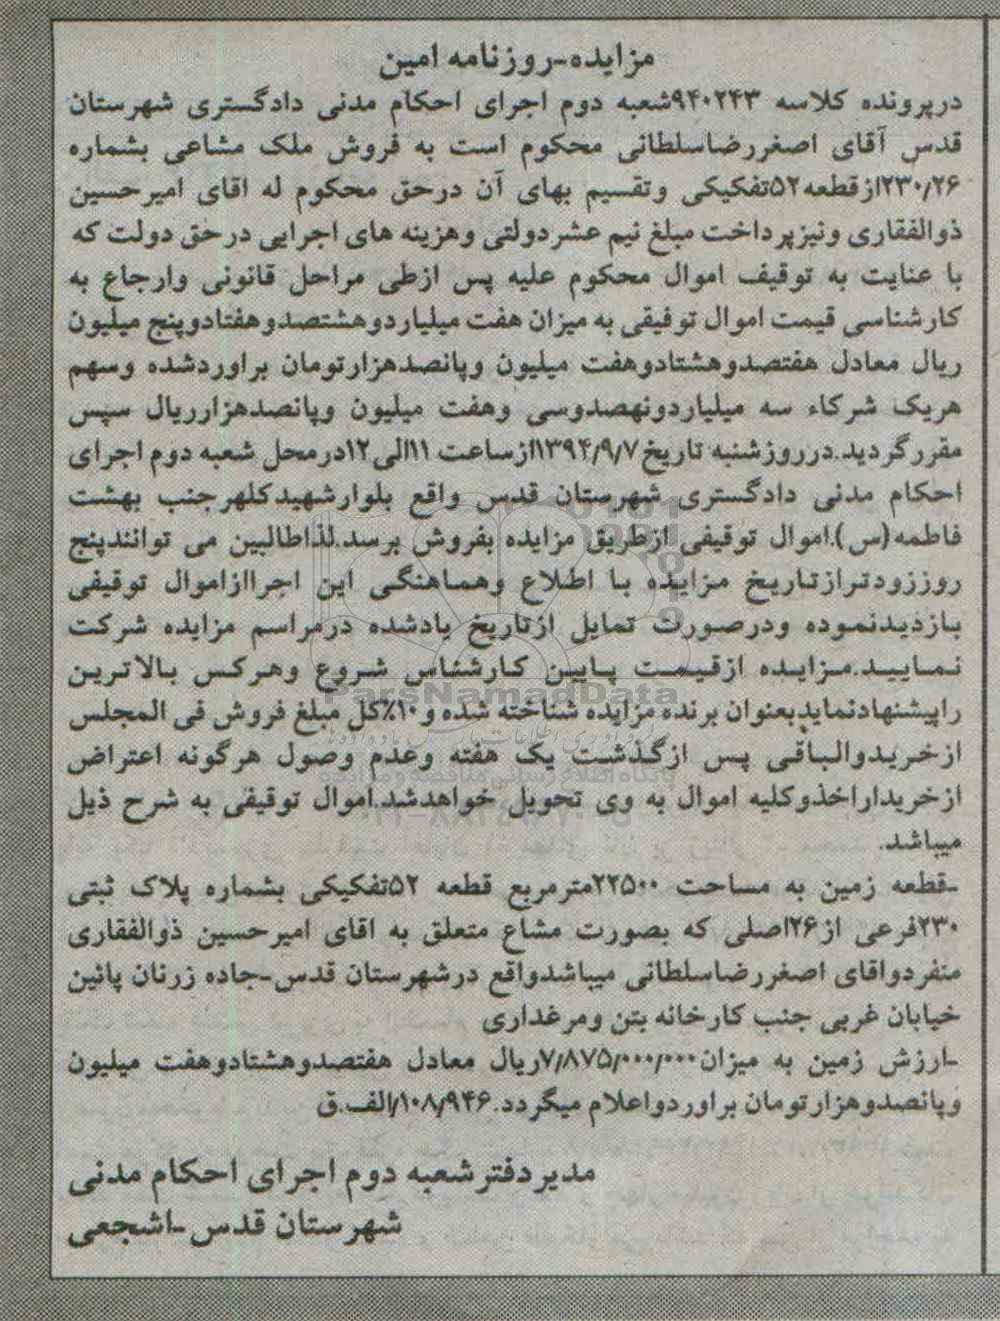 مزایده-روزنامه امین
درپرونده کلاسه ۹۴۰۲۴۳شعبه دوم اجرای احکام مدنی دادگستری شهرستان
قدس آقای اصغررضاسلطانی محکوم است به فروش ملک مشاعی بشماره
۲۳۰/۲۶ازقطعه۵۲تفکیکی وتقسیم بهای آن درحق محکوم له اقای امیرحسین
ذوالفقاری ونیزپرداخت مبلغ نیم عشردولتی وهزینه های اجرایی درحق دولت که
با عنایت به توقیف اموال محکوم علیه پس ازطی مراحل قانونی وارجاع به
کارشناسی قیمت اموال توقیفی به میزان هفت میلیاردوهشتصدوهفتادوپنج میلیون
ریال معادل هفتصدوهشتادوهفت میلیون وپانصدهزارتومان براوردشده وسهم
هریک شرکاء سه میلیاردونهصدوسی وهفت میلیون وپانصدهزارریال سپس
مقررگردید.درروزشنبه تاریخ۱۳۹۴/۹/۷ازساعت ۱۱الی۱۲درمحل شعبه دوم اجرای
احکام مدنی دادگستری شهرستان قدس واقع بلوارشهیدکلهرجنب بهشت
فاطمه(س).اموال توقیفی ازطریق مزایده بفروش برسد.لذاطالبین می توانندپنج
روززودترازتاریخ مزایده با اطلاع وهماهنگی این اجراازاموال توقیفی
بازدیدنموده ودرصورت تمایل ازتاریخ یادشده درمراسم مزایده شرکت
نمایید.مزایده ازقیمت پایین کارشناس شروع وهرکس بالاترین
راپیشنهادنمایدبعنوان برنده مزایده شناخته شده و۱۰٪کل مبلغ فروش فی المجلس
ازخریدوالباقی پس ازگذشت یک هفته وعدم وصول هرگونه اعتراض
ازخریداراخذوکلیه اموال به وی تحویل خواهدشد.اموال توقیفی به شرح ذیل
میباشد.
-قطعه زمین به مساحت ۲۲۵۰۰مترمربع قطعه ۵۲تفکیکی بشماره پلاک ثبتی
۲۳۰فرعی از۲۶اصلی که بصورت مشاع متعلق به اقای امیرحسین ذوالفقاری
منفردواقای اصغررضاسلطانی میباشدواقع درشهرستان قدس-جاده زرنان پائین
خیابان غربی جنب کارخانه بتن ومرغداری
-ارزش زمین به میزان۷/۸۷۵/۰۰۰/۰۰۰ریال معادل هفتصدوهشتادوهفت میلیون
وپانصدوهزارتومان براوردواعلام میگردد.۱۰۸/۹۴۶/الف.ق
مدیردفترشعبه دوم اجرای احکام مدنی
شهرستان قدس-اشجعی
ParsNamadData